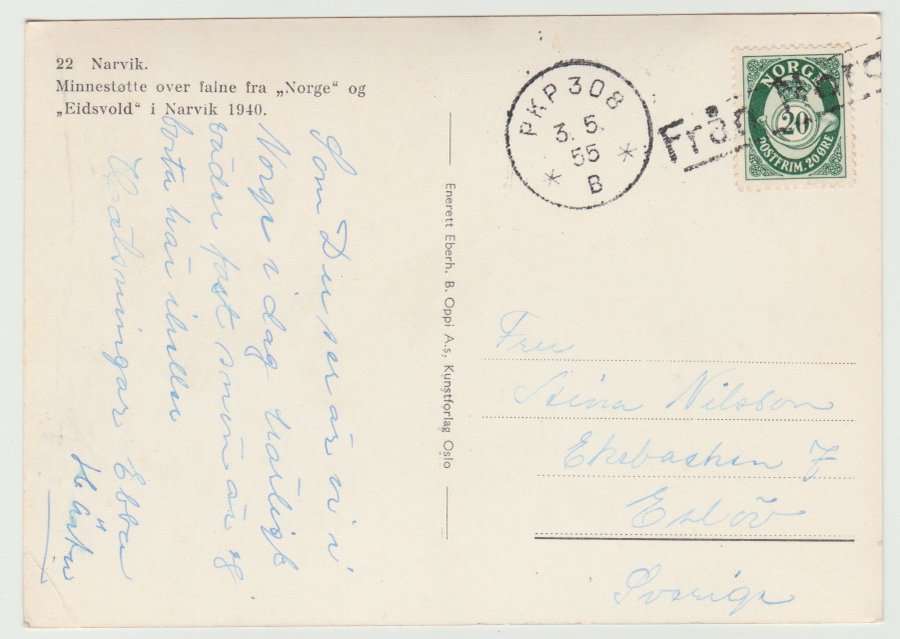 22 Narvik.
Minnestøtte over falne fra „Norge“ og
„Eidsvold“ i Narvik 1940.
Som Du ser är vi i
Norge i dag härligt
väder fast snön är ej
borta här
Hälsningar Ebba
Enerett Eberh. B. Oppi A.s, Kunstforlag Oslo
PKP 308
3.5.
55
* B *
Från
NORGE
20
POSTFRIM. 20 ØRE
Fru
Stina Nilsson
Ekebacken 7
Eslöv
Sverige